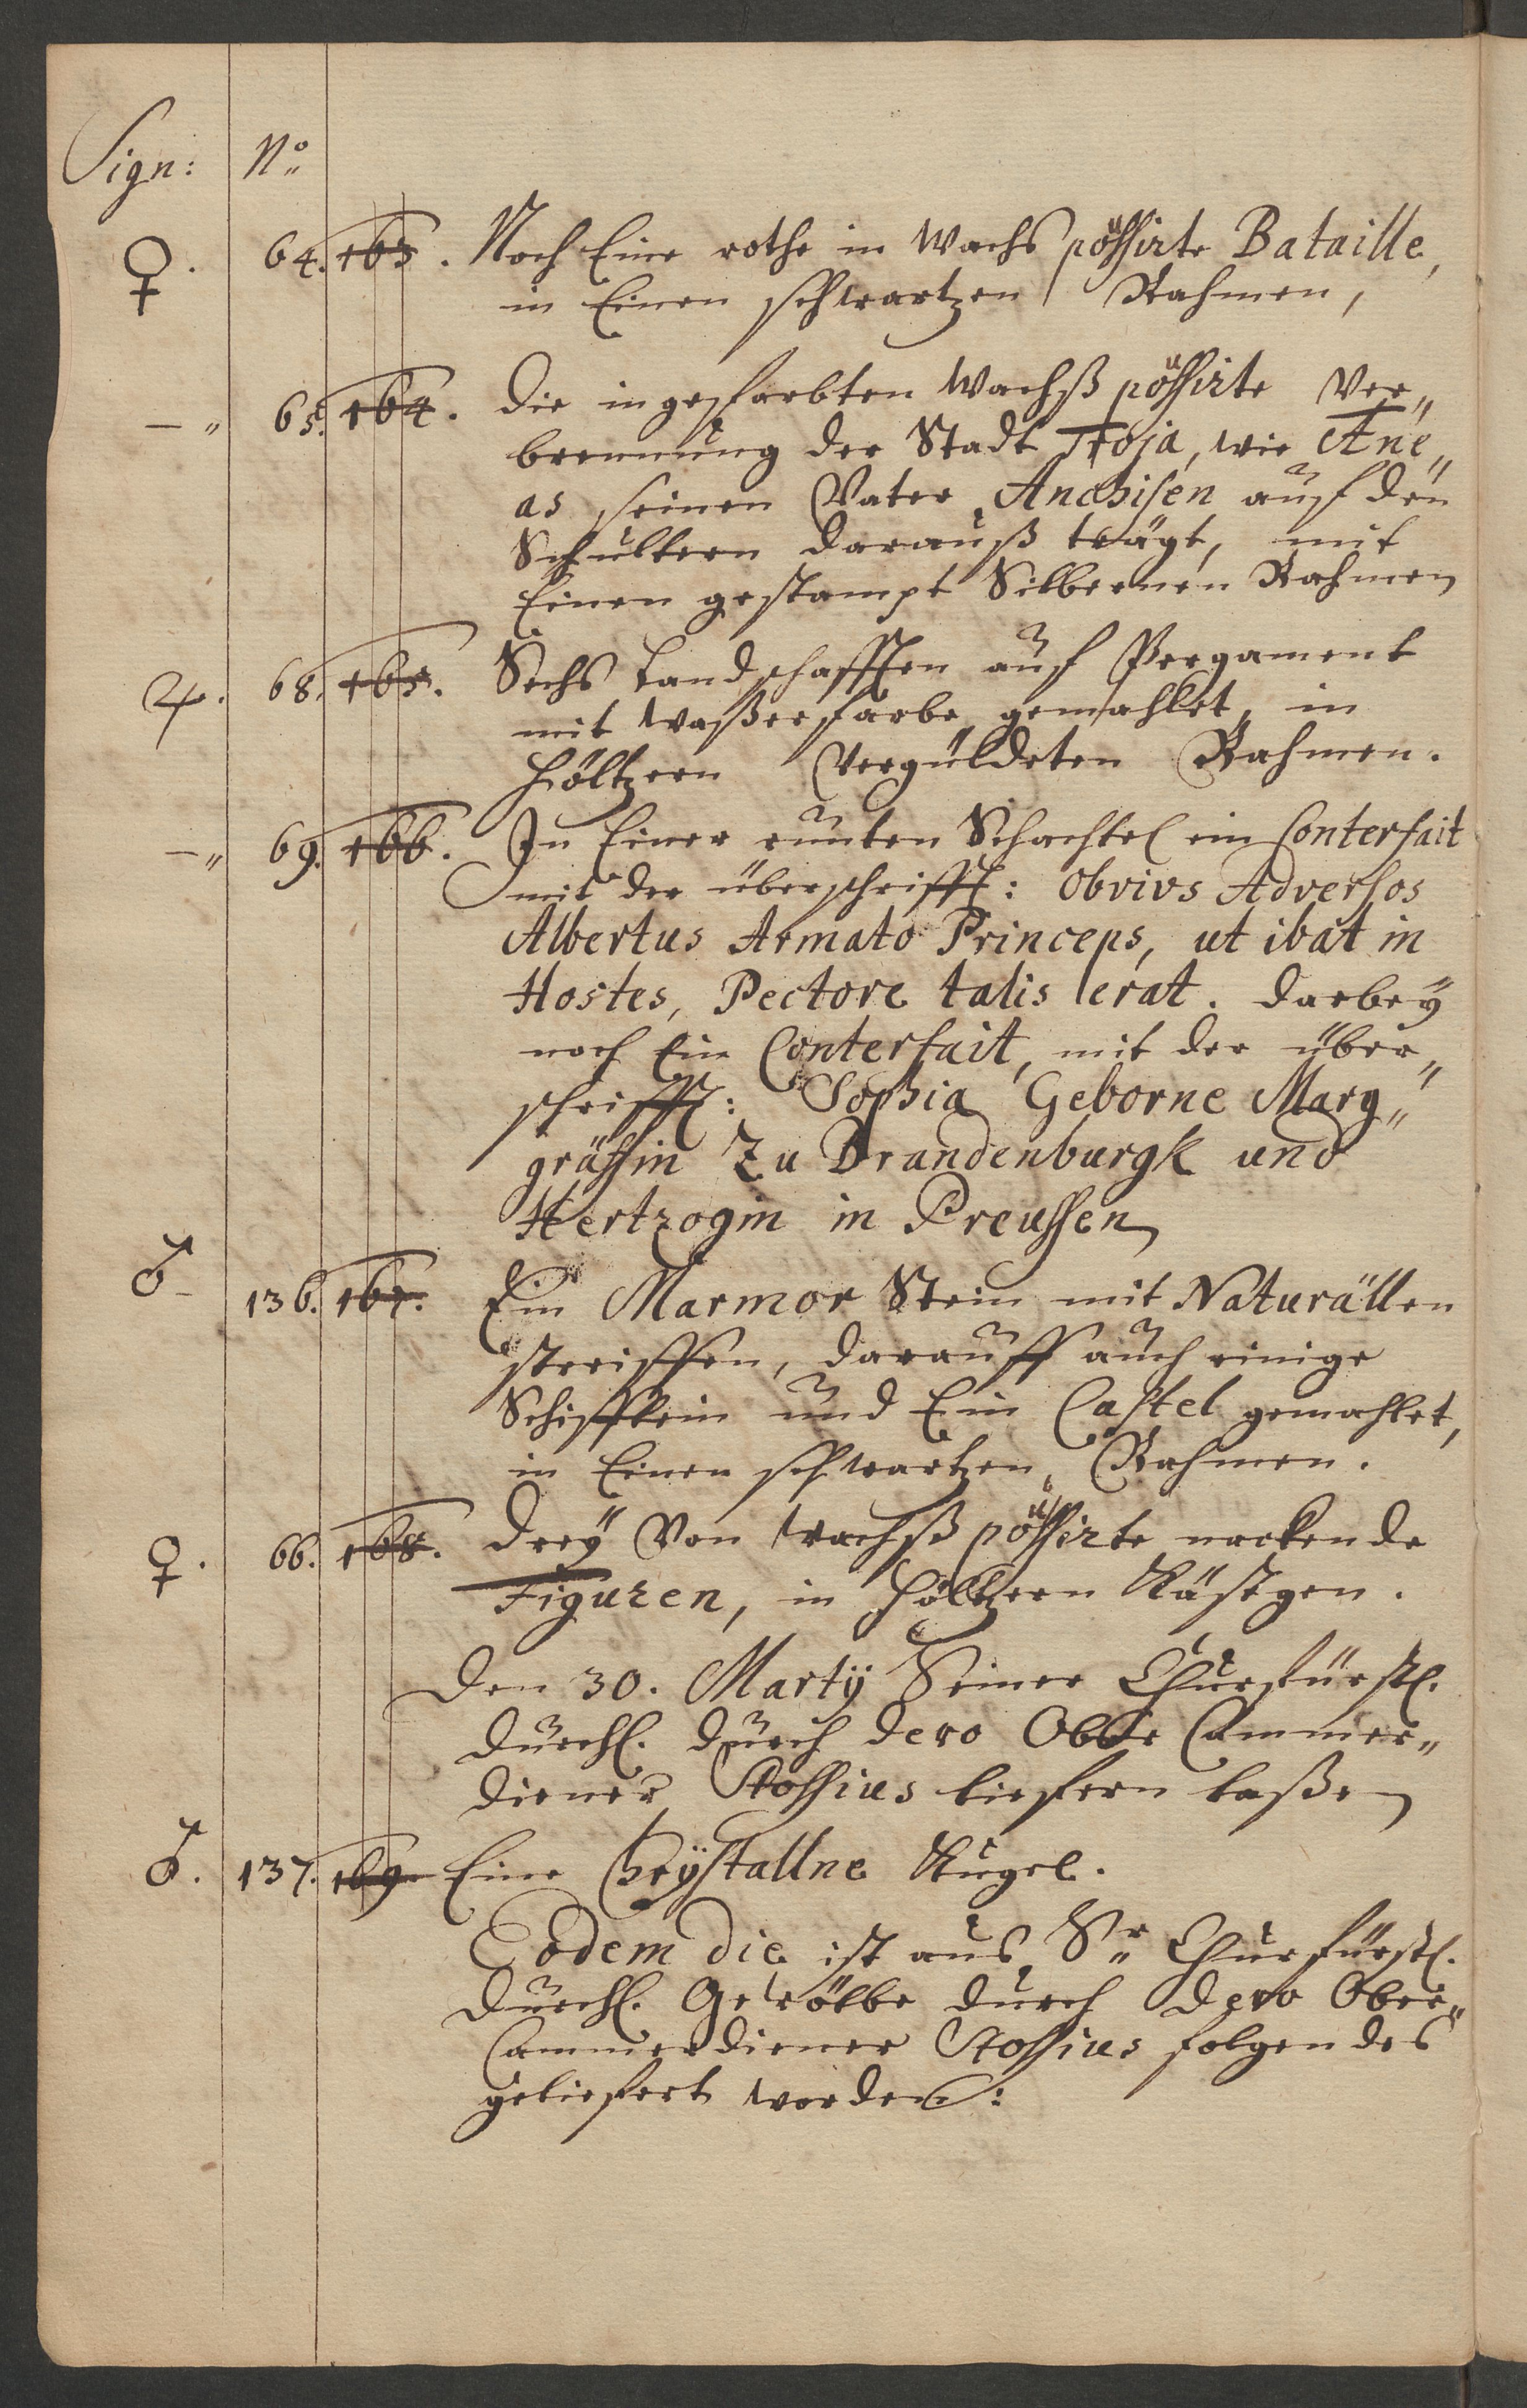 Sign: No.
♀. 64. 163. Noch Eine rothe in Wachs poßsirte Bataille,
in Einen schwartzen Rahmen,
—" 65. 164. Die in gefarbten Wachß poßsirte Ver„
brennung der Stadt Troja, wie Æne„
as seinen Vater Anchisen auf den
Schultern darauß trägt, mit
Einen gestampt Silbernen Rahmen
♃. 68. 165. Sechs Landschafften auf Pergament
mit waßerfarbe gemahlet, in
höltzern Vergüldeten Rahmen.
—" 69. 166. In Einer runten Schachtel ein Conterfait
mit der überschrifft: Obvivs Adversos
Albertus Armato Princeps, ut ibat in
Hostes, Pectore talis erat. darbeÿ
noch Ein Conterfait, mit der über„
schrifft: Sophia Geborne Marg„
gräffin Zu Brandenburgk und
Hertzogin in Preussen
♂ 136. 167. Ein Marmor Stein mit Naturällen
streiffen, darauff auch einige
Schifflein und Ein Castel gemahlet,
in Einen schwartzen Rahmen.
♀. 66. 168. Dreÿ Von Wachß poßsirte nackende
Figuren, in höltzern Kästgen.
Den 30. Martÿ Seiner Churfürstl.
Durchl. durch dero Ober Cammer„
diener Stossius liefern laßen
♂. 137. 169. Eine Chrÿstallne Kugel.
Eodem die ist aus Sr Churfürstl.
Durchl. Gewölbe durch dero Ober„
Cammerdiener Stossius folgendes
geliefert worden: